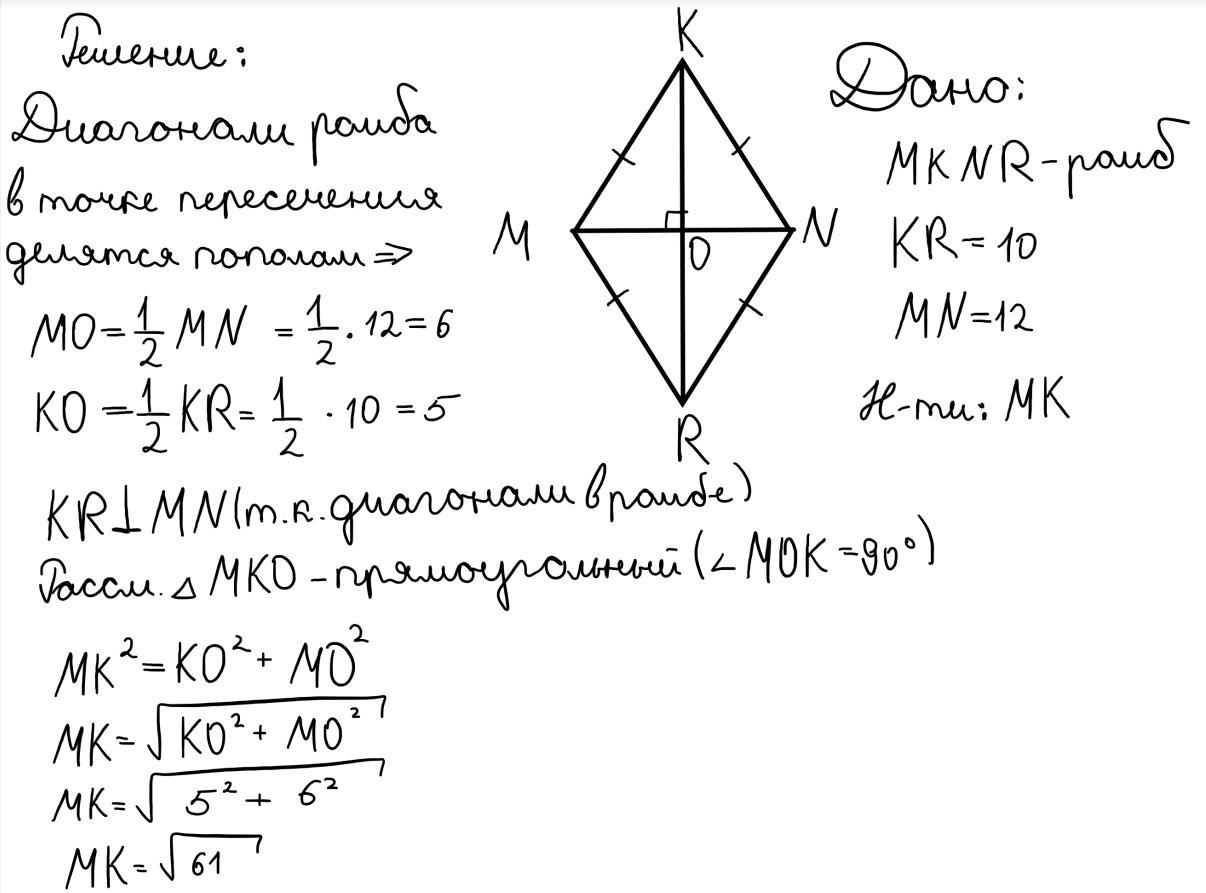 Решение:
Диагонали ромба
в точке пересечения
делятся пополам ⇒
MO = 1/2 MN = 1/2 · 12 = 6
KO = 1/2 KR = 1/2 · 10 = 5
K
M
N
O
R
Дано:
MKNR - ромб
KR = 10
MN = 12
Н-ти: MK
KR ⊥ MN (т.к. диагонали в ромбе)
Рассм. △ MKO - прямоугольный (∠ MOK = 90°)
MK² = KO² + MO²
MK = √(KO² + MO²)
MK = √(5² + 6²)
MK = √61